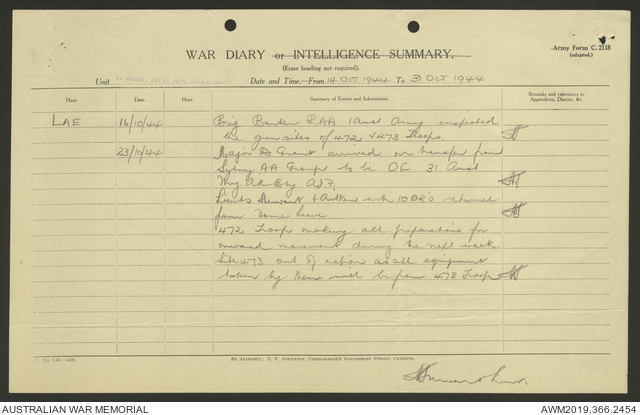 WAR DIARY or INTELLIGENCE SUMMARY.
(Erase heading not required).
Army Form C. 2118
(adapted.)
Unit
Date and Time—From 14 OCT 1944 To 31 OCT 1944
Place.
Date.
Hour.
Summary of Events and Information.
Remarks and references to
Appendices, Diaries, &c.
LAE
16/10/44
Brig Barker RAA 1 Aust Army inspected
the gunsites of 472 & 473 Troops.
23/10/44
Major Grant arrived on transfer from
Sydney AA Group to be OC 31 Aust
Hvy AA Bty AIF.
Lieuts Stewart & Aitken with 10 OR's returned
from Home Leave.
472 Troop making all preparations for
onward movement during the next week.
Site 473 out of action as all equipment
taken by them will be from 473 Troop
By Authority: L. F. Johnston, Commonwealth Government Printer, Canberra.
AUSTRALIAN WAR MEMORIAL
AWM2019.366.2454